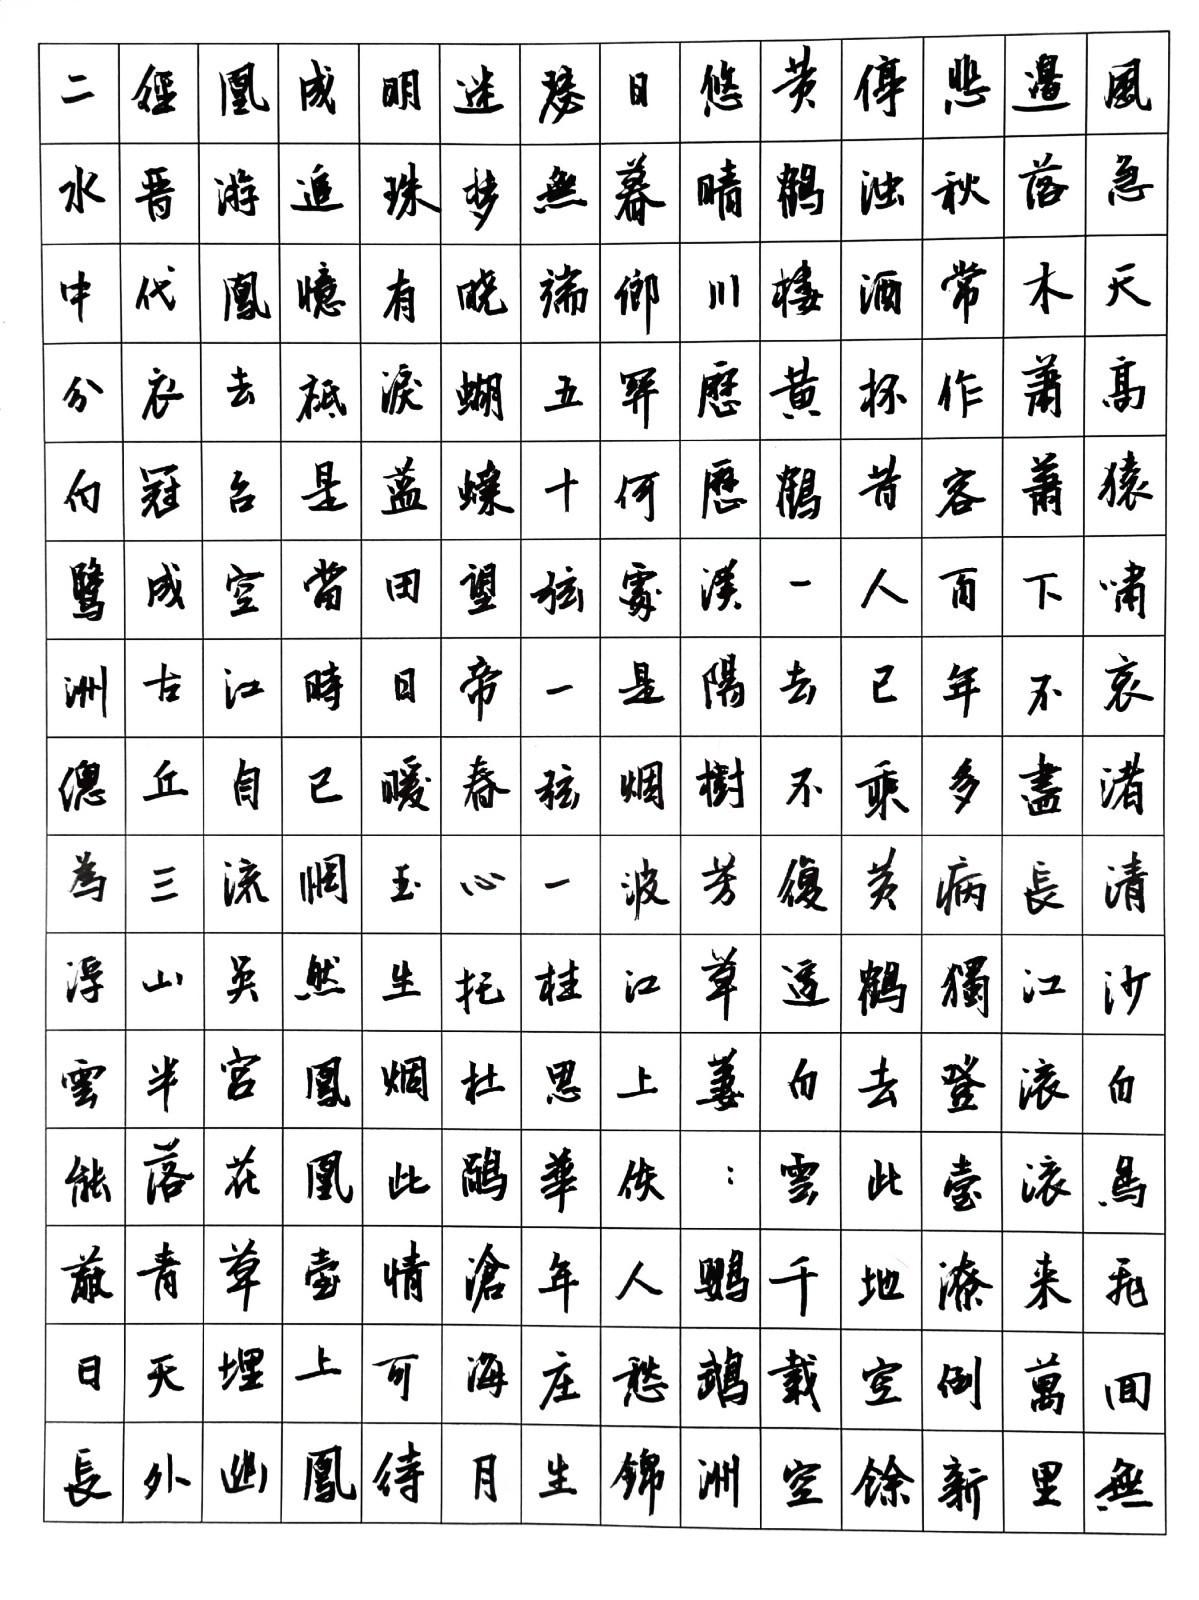 風急天高猿嘯哀渚清沙白鳥飛回無
邊落木蕭蕭下不盡長江滚滚来萬里
悲秋常作客百年多病獨登臺潦倒新
停浊酒杯昔人已乘黄鶴去此地空馀
黄鶴楼黄鶴一去不復返白雲千載空
悠晴川歷歷漢陽樹芳草萋:鸚鵡洲
日暮鄉関何處是烟波江上使人愁錦
瑟無端五十弦一弦一柱思華年庄生
迷梦晓蝴蝶望帝春心托杜鵑滄海月
明珠有淚蓝田日暖玉生烟此情可待
成追憶祗是當時已惘然鳳凰臺上鳳
凰游鳳去台空江自流吳宫花草埋幽
徑晋代衣冠成古丘三山半落青天外
二水中分白鷺洲總為浮雲能蔽日長